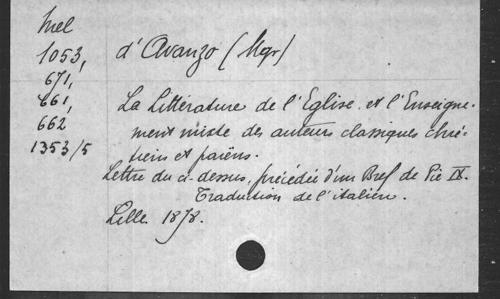 Mel
1053,
671,
661,
662
1353/5
d'Avanzo (Mgr)
La Littérature de l'Eglise et l'Enseigne-
ment mixte des auteurs classiques chré-
tiens et païens.
Lettre du ci-dessus, précédée d'un Bref de Pie IX.
Traduction de l'italien.
Lille. 1878.